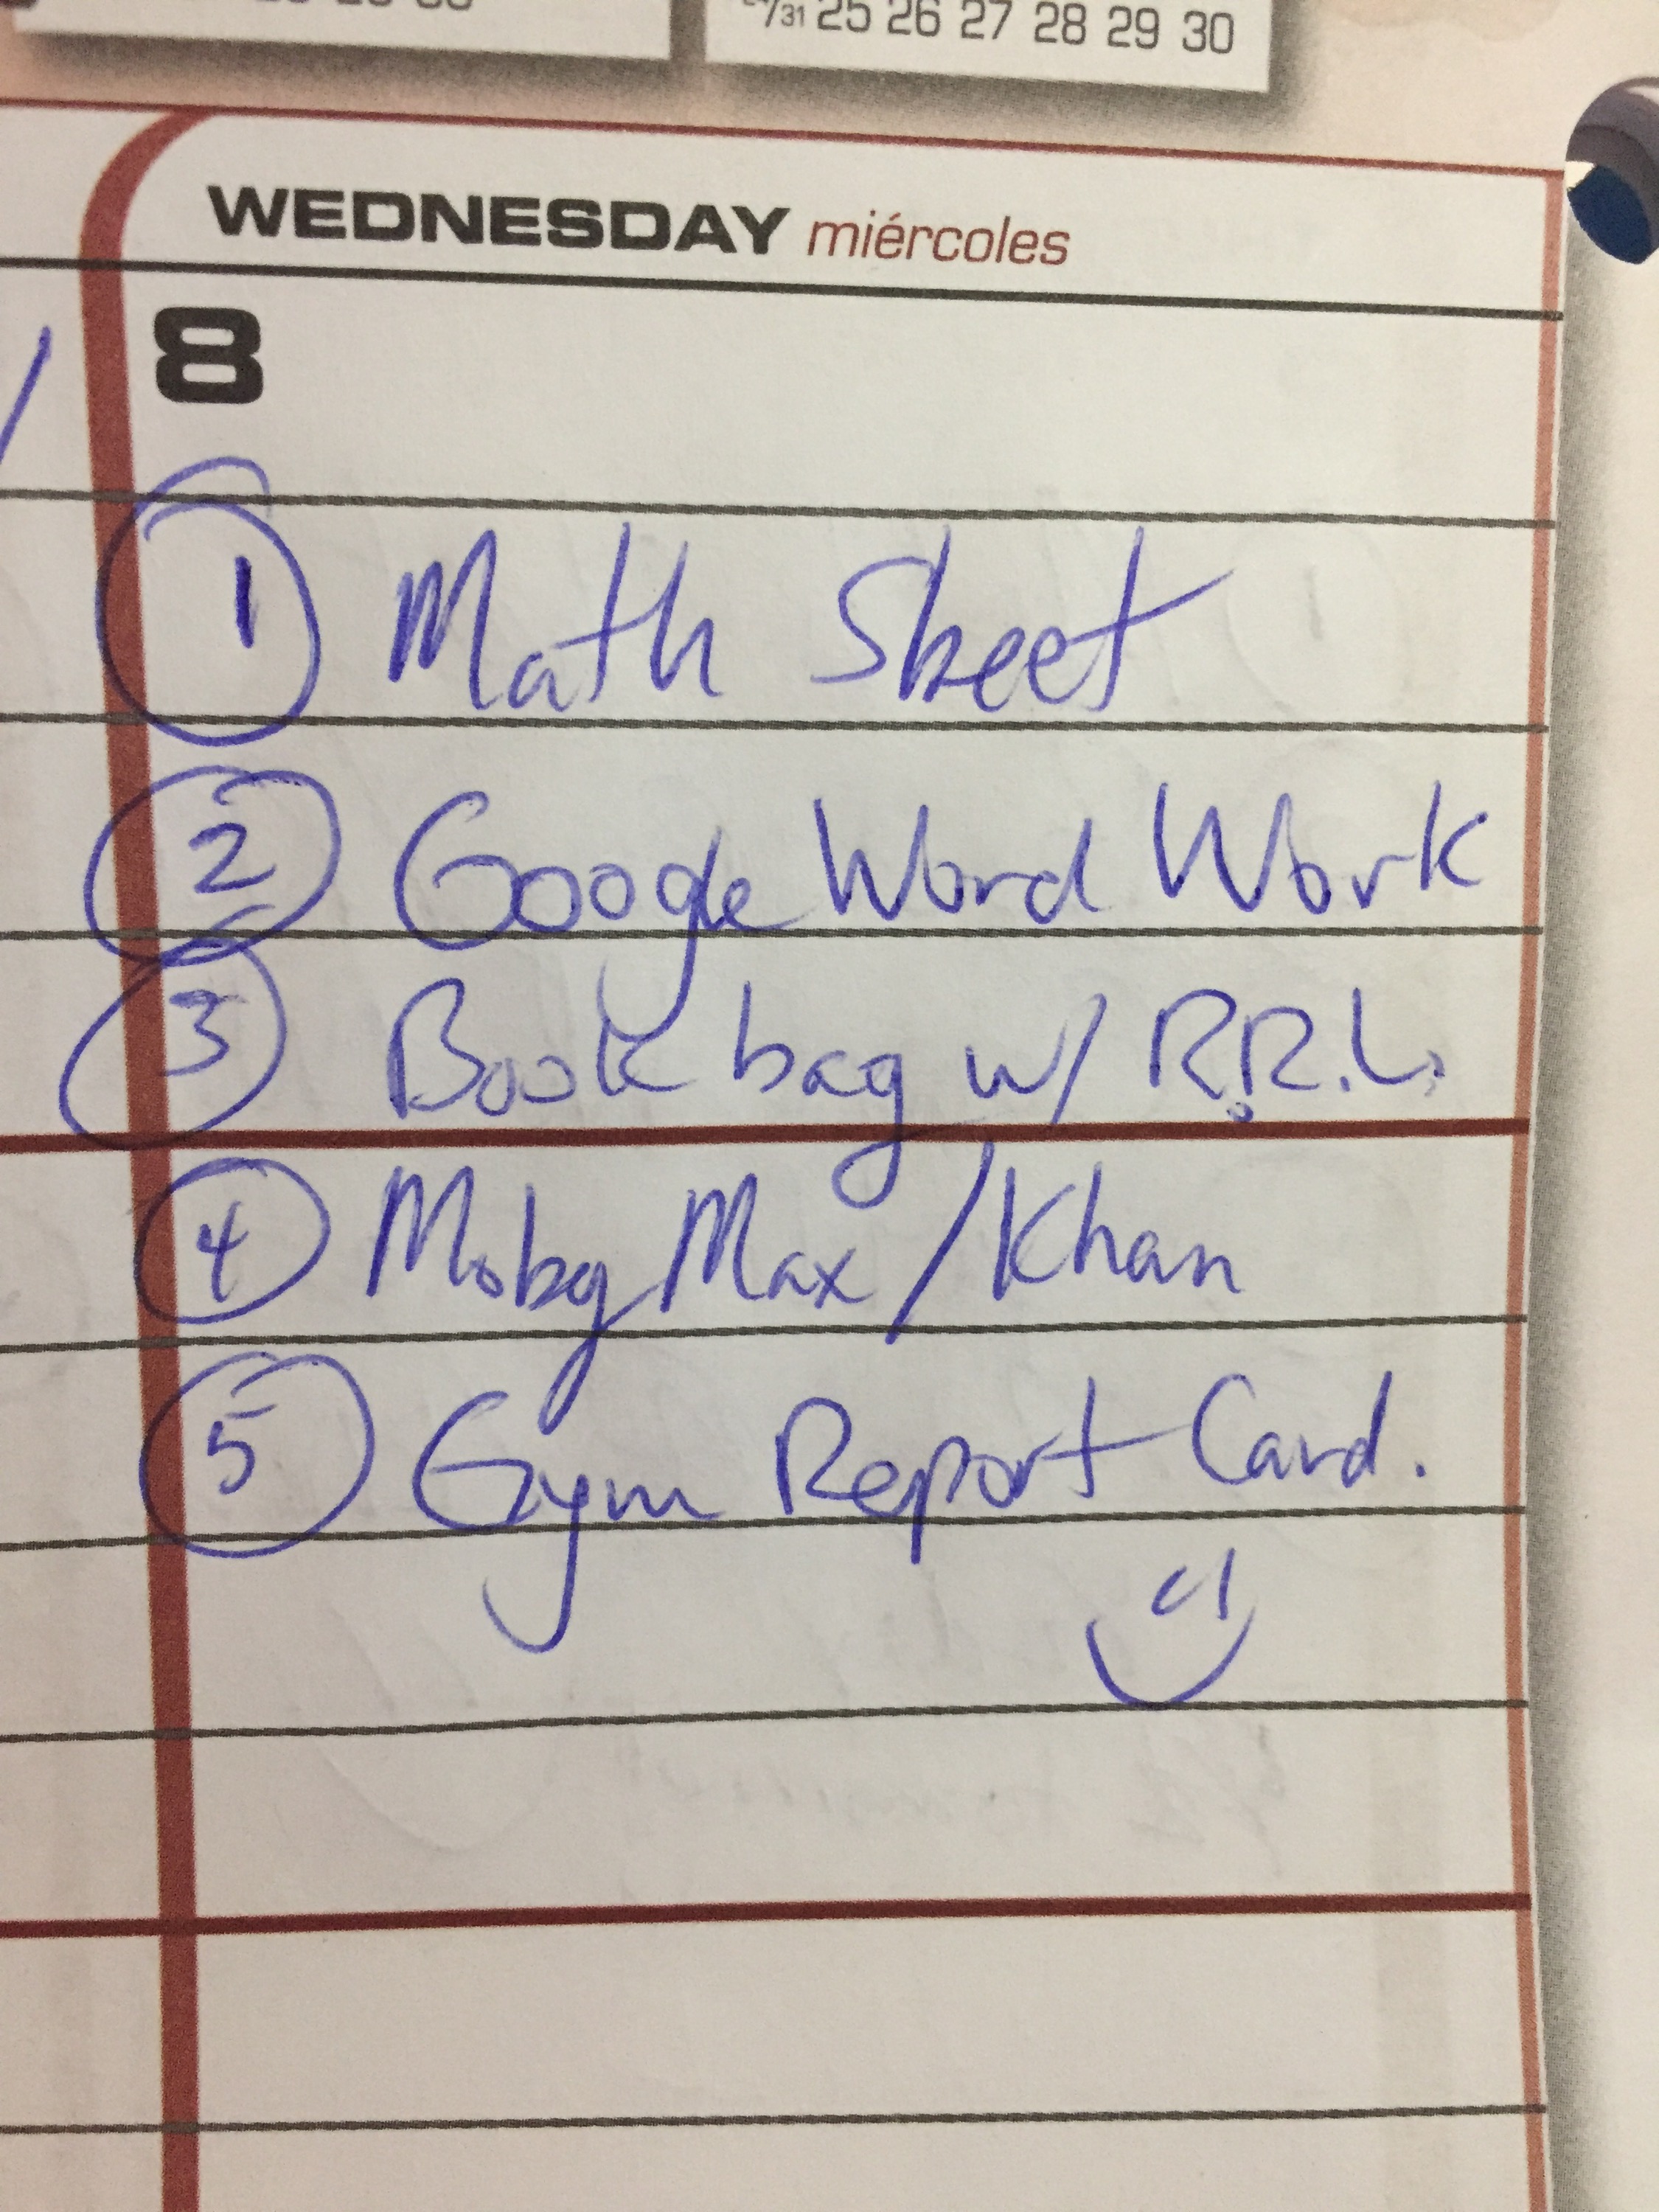 /31 25 26 27 28 29 30
WEDNESDAY miércoles
8
1 Math Sheet
2 Google Word Work
3 Book bag w/ R.R.L.
4 Moby Max/Khan
5 Gym Report Card.